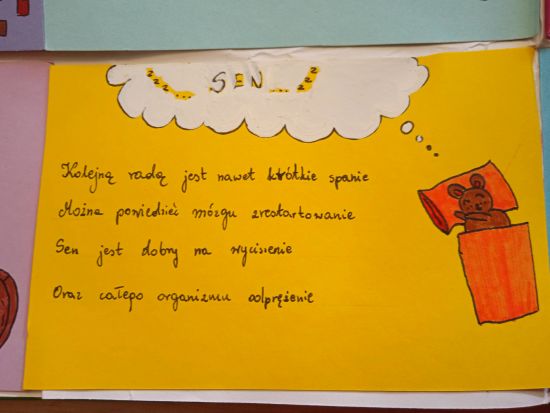 zzz... SEN ...zzz
Kolejną radą jest nawet krótkie spanie
Można powiedzieć mózgu zrestartowanie
Sen jest dobry na wyciszenie
Oraz całego organizmu odprężenie